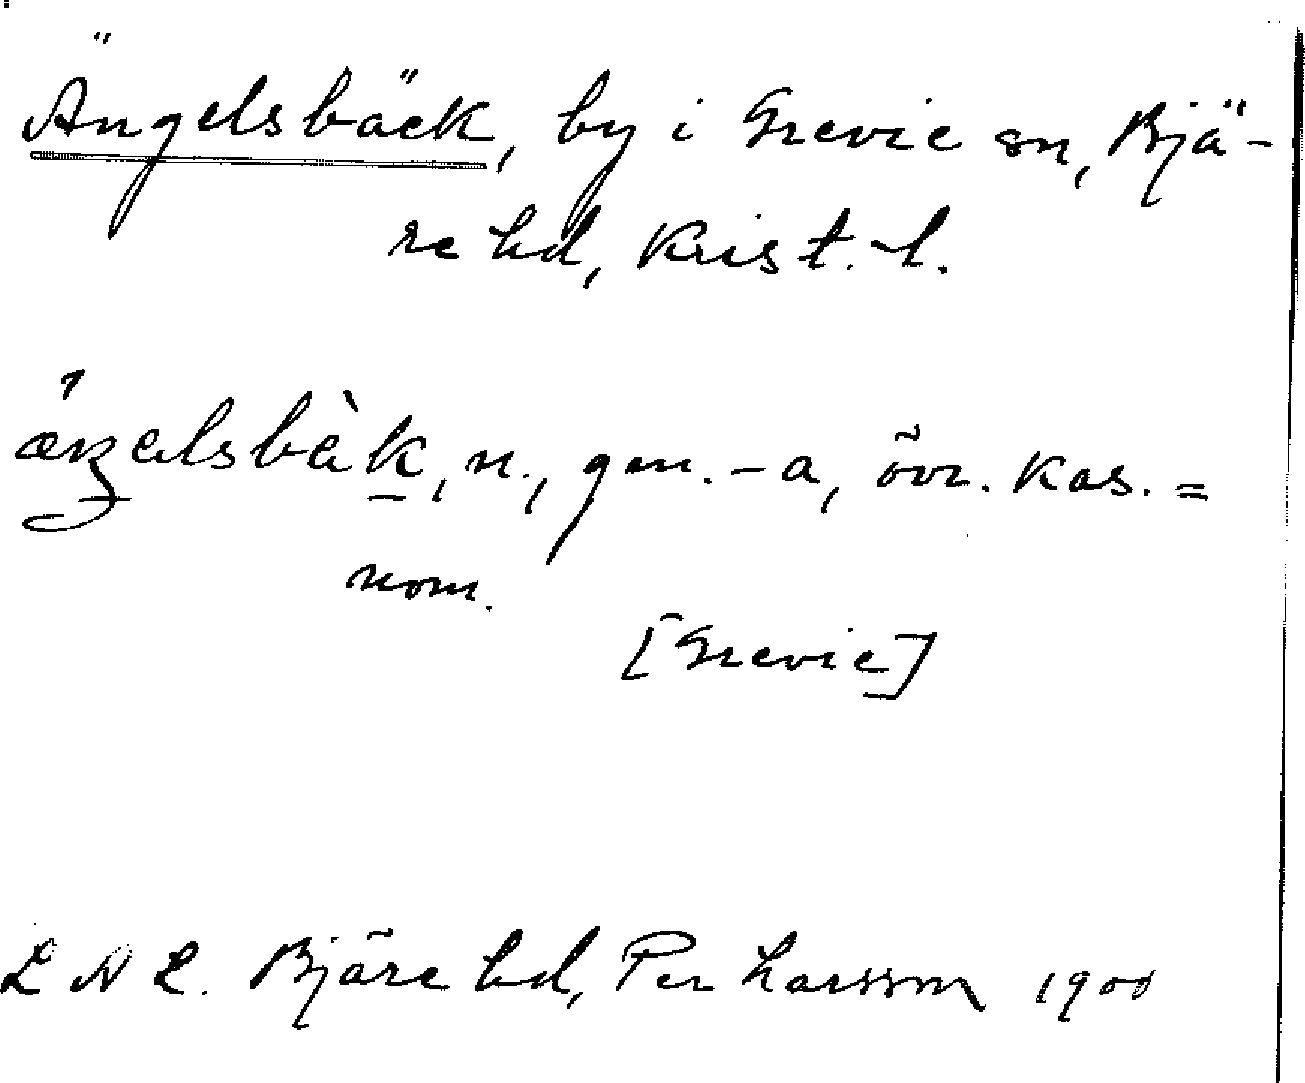 Ängelsbäck, by i Grevie sn, Bjä-
re hd, Krist. l.
n., gen. -a, övr. kas. =
nom.
[Grevie]
L N L. Bjäre hd, Per Larsson 1900